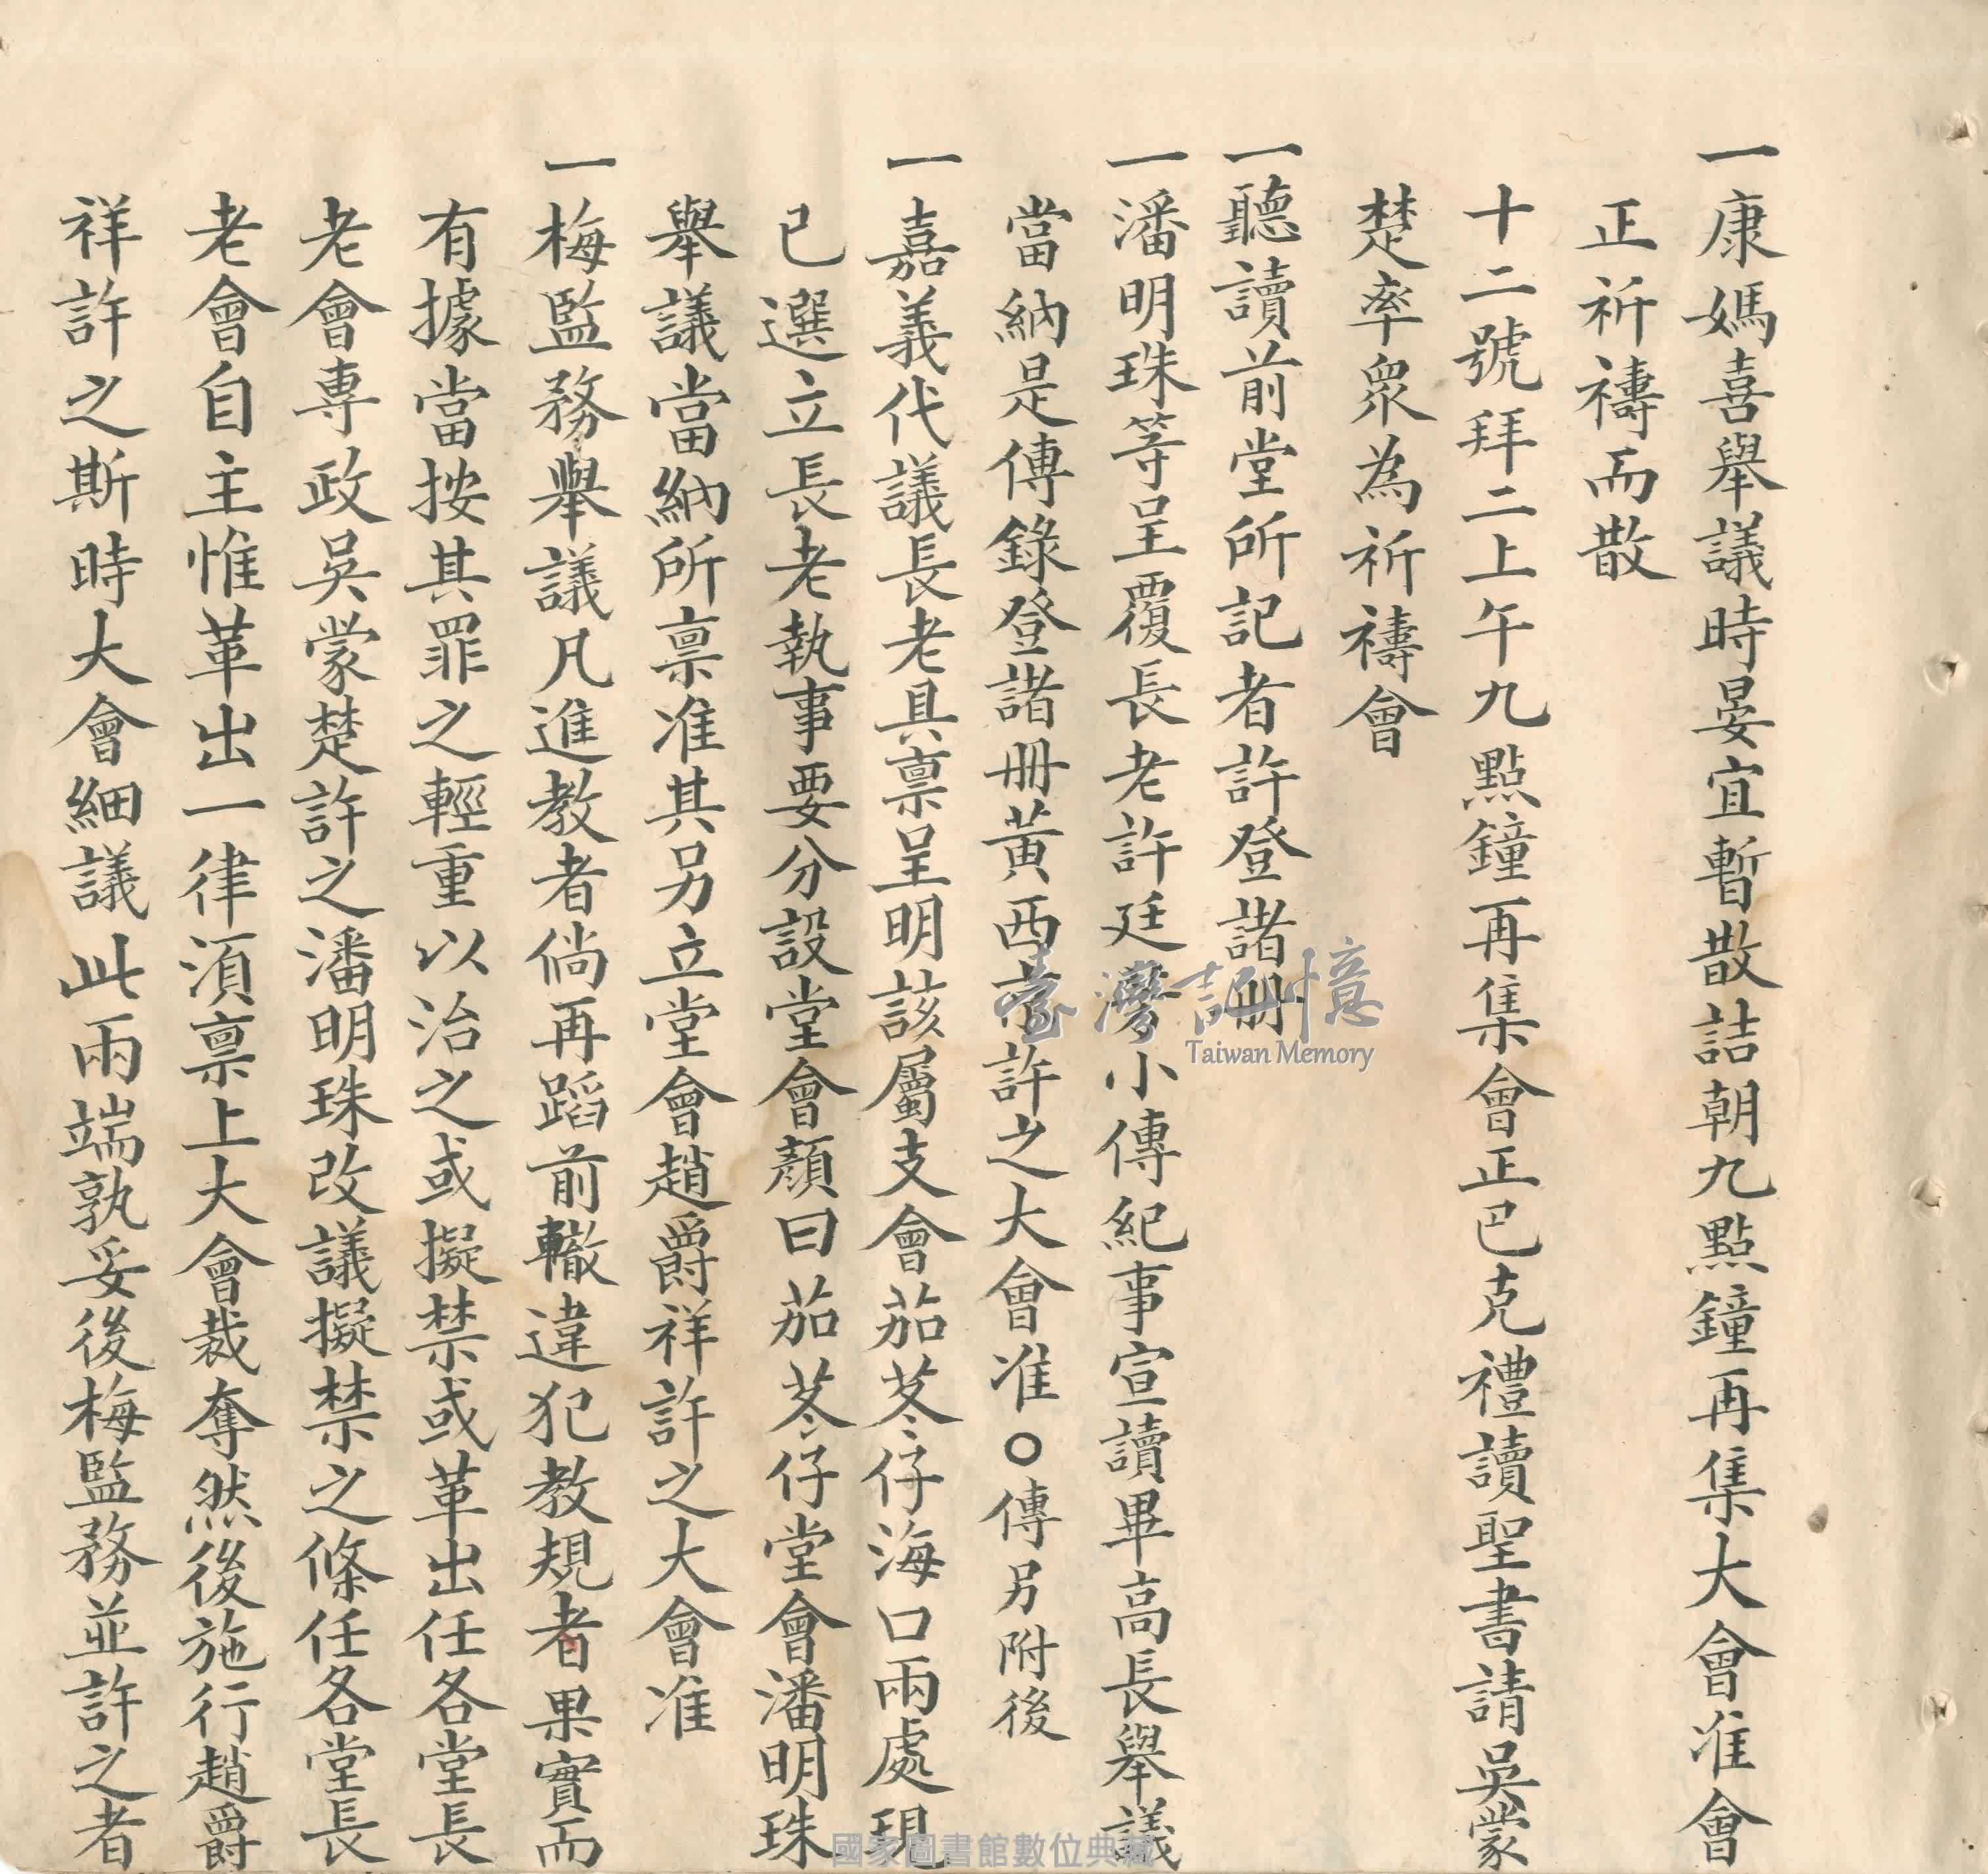 一康媽喜舉議時晏宜暫散詰朝九點鐘再集大會准會
正祈禱而散
十二號拜二上午九點鐘再集會正巴克禮讀聖書請吳蒙
楚率衆為祈禱會
一聽讀前堂所記者許登諸冊
一潘明珠等呈覆長老許廷芳小傳紀事宣讀畢高長舉議
當納是傳錄登諸冊黃西許之大會准○傳另附後
一嘉義代議長老具禀呈明該屬支會茄苳仔海口兩處現
已選立長老執事要分設堂會顏曰茄苳仔堂會潘明珠
舉議當納所禀准其另立堂會趙爵祥許之大會准
一梅監務舉議凡進教者倘再蹈前轍違犯教規者果實而
有據當按其罪之輕重以治之或擬禁或革出任各堂長
老會專政吳蒙楚許之潘明珠改議擬禁之條任各堂長
老會自主惟革出一律須禀上大會裁奪然後施行趙爵
祥許之斯時大會細議此兩端孰妥後梅監務並許之者
臺灣記憶
Taiwan Memory
國家圖書館數位典藏